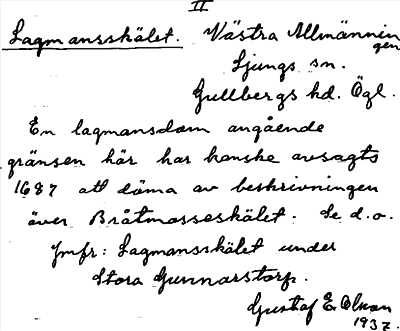 II
Lagmansskälet. Västra Allmännin
gen
Ljungs sn.
Gullbergs hd. Ögl.
En lagmansdom angående
gränsen här har kanske avsagts
1687 att döma av beskrivningen
över Bråtmosseskälet. Se d.o.
Jmfr: Lagmansskälet under
Stora Gunnarstorp.
Gustaf E. Olson
1937.